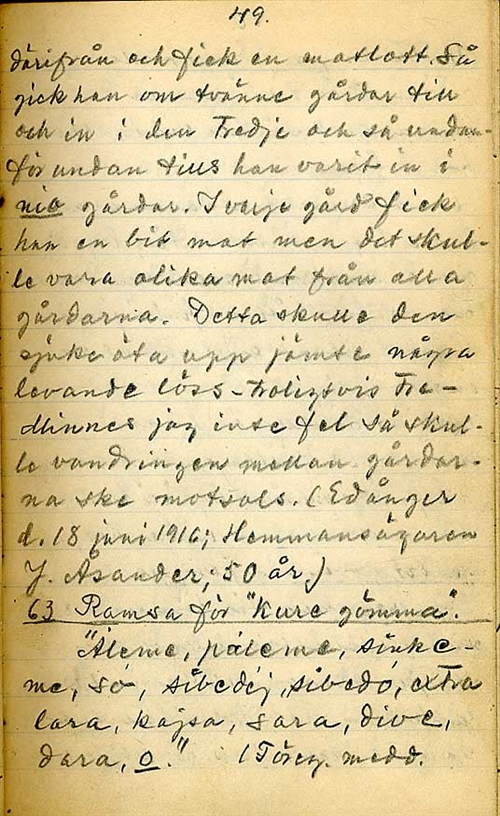 49.
därifrån och fick en matlott. Så
gick han om tvänne gårdar till
och in i den tredje och så undan
för undan tills han varit in i
nio gårdar. I varje gård fick
han en bit mat men det skul-
le vara olika mat från alla
gårdarna. Detta skulle den
sjuke äta upp jämte några
levande löss - troligtvis tre -
Minnes jag inte fel så skul-
le vandringen mellan gårdar-
na ske motsols. (Edånger
d. 18 juni 1916; Hemmansägaren
J. Åsander; 50 år.)
63 Ramsa för "Kure gömma".
"Äleme, päleme, sinke-
me, so, sibedej, sibedo, extra
lara, kajsa, sara, dive,
dara, o." (Föreg. medd.